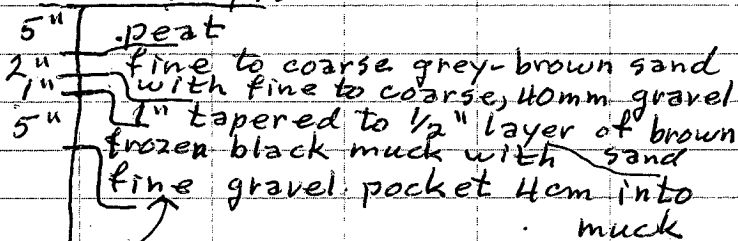 5" .peat
2" fine to coarse grey-brown sand
1" with fine to coarse, 40mm gravel
5" 1" tapered to 1/2" layer of brown
frozen black muck with sand
fine gravel pocket 4cm into
muck